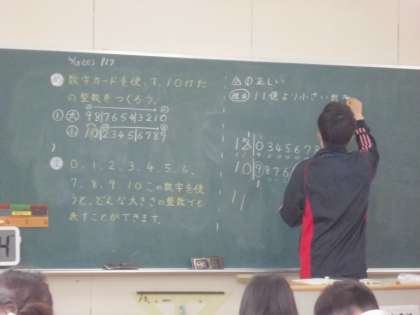 数字カードを使って、10けた
の整数をつくろう。
① 大 9876543210
② 小 1023456789
0、1、2、3、4、5、6、
7、8、9の10この数字を使
うと、どんな大きさの整数でも
表すことができます。
正しい
11億より小さい数
120345678
10 9876
11
4